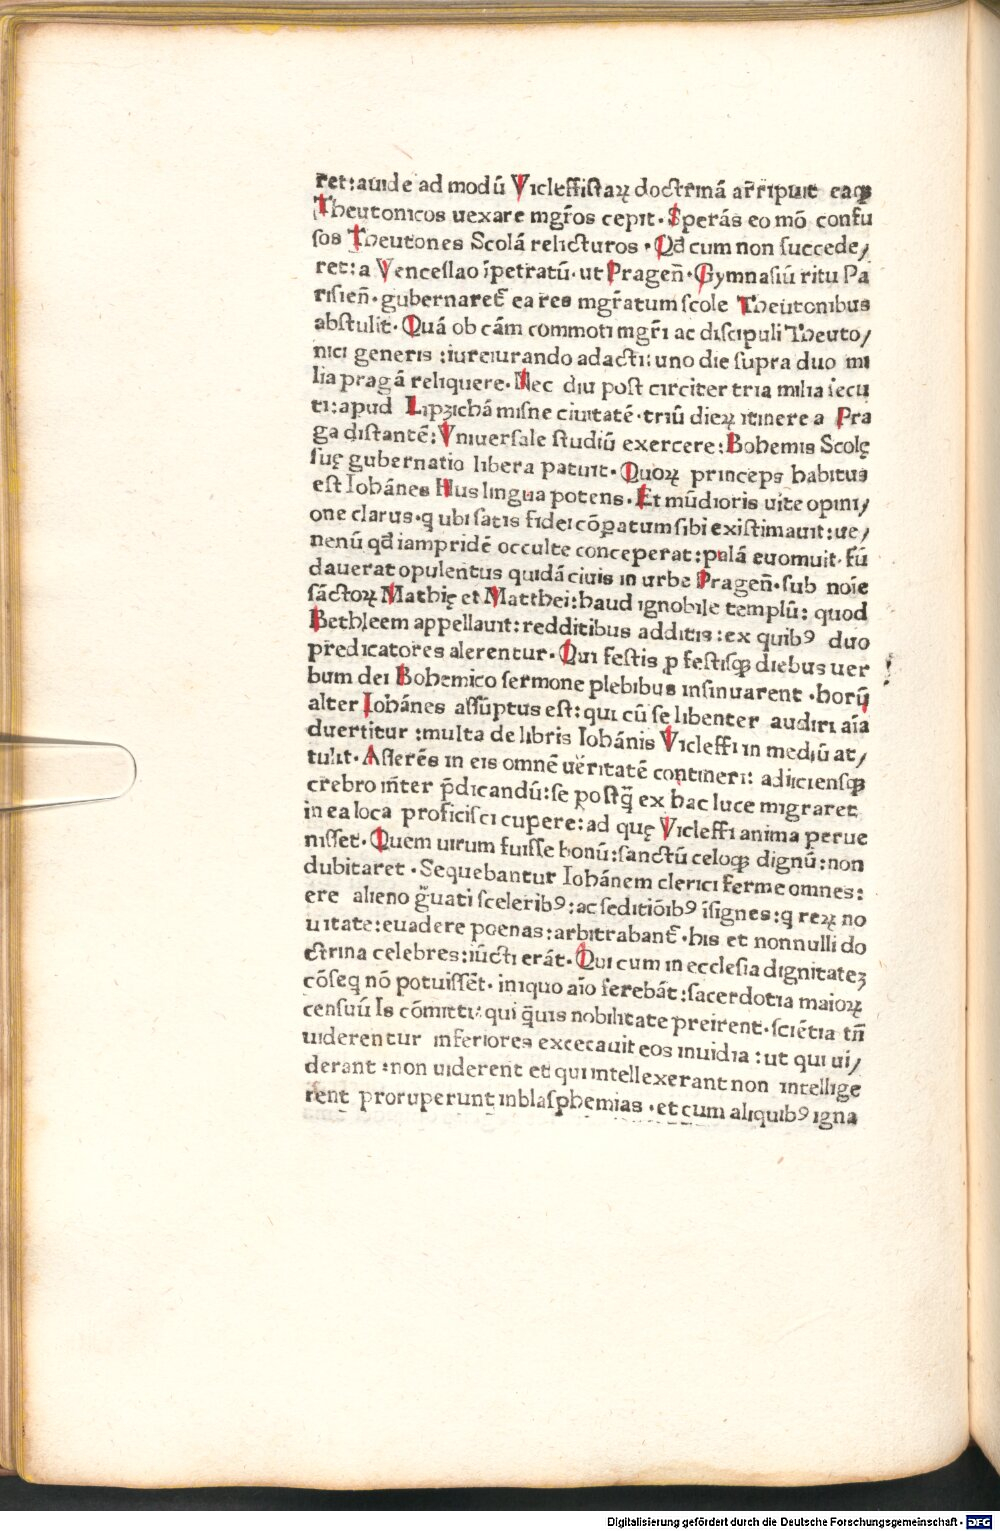 ret:auide ad modū Vicleffistaꝝ doctrinā arripuit eaqꝫ
Theutonicos uexare mgr̄os cepit·Sperās eo mō confu
sos Theutones Scolā relicturos·Qd̄ cum non succede/
ret:a Venceslao īpetratū·ut Pragen̄·Gymnasiū ritu Pa
risien̄·gubernaret᷑ ea res mgr̄atum scole Theutonibus
abstulit·Quā ob cām commoti mgr̄i ac discipuli Theuto/
nici generis :iureiurando adacti:uno die supra duo mi
lia pragā reliquere·Nec diu post circiter tria milia secu
ti:apud Lipzichā misne ciuitatē·triū dieꝝ itinere a Pra
ga distantē:Vniuersale studiū exercere:Bohemis Scolę
suę gubernatio libera patuit·Quoꝝ princeps habitus
est Iohānes Hus lingua potens·Et mūdioris uite opini/
one clarus·q ubi satis fidei cōꝑatum sibi existimauit:ue/
nenū qd̄ iampridē occulte conceperat:palā euomuit·fū
dauerat opulentus quidā ciuis in urbe Pragen̄·sub noīe
sāctoꝝ Mathię et Matthei:haud ignobile templū: quod
Bethleem appellauit:redditibus additis:ex quibꝰ duo
predicatores alerentur·Qui festis ꝓ festisqꝫ diebus uer
bum dei Bohemico sermone plebibus insinuarent·horū
alter Iohānes assūptus est:qui cū se libenter audiri aīa
duertitur :multa de libris Iohānis Vicleffi in mediū at/
tulit·Asserēs in eis omnē ueritatē contineri: adiiciensqꝫ
crebro inter p̄dicandū:se postq̄ ex hac luce migraret
in ea loca proficisci cupere:ad quę Vicleffi anima perue
nisset·Quem uirum fuisse bonū:sanctū celoqꝫ dignū:non
dubitaret·Sequebantur Iohānem clerici ferme omnes:
ere alieno g̃uati sceleribꝰ:ac seditiōibꝰ īsignes:q reꝝ no
uitate:euadere poenas:arbitrabant᷑·his et nonnulli do
ctrina celebres:iūcti erāt·Qui cum in ecclesia dignitateꝫ
cōseq nō potuissēt·iniquo aīo ferebāt:sacerdotia maioꝝ
censuū Is cōmitti·qui q̄uis nobilitate preirent·sciētia tn̄
uiderentur inferiores excecauit eos inuidia :ut qui ui/
derant :non uiderent et qui intellexerant non intellige
rent proruperunt in blasphemias·et cum aliquibꝰ igna
Digitalisierung gefördert durch die Deutsche Forschungsgemeinschaft - DFG